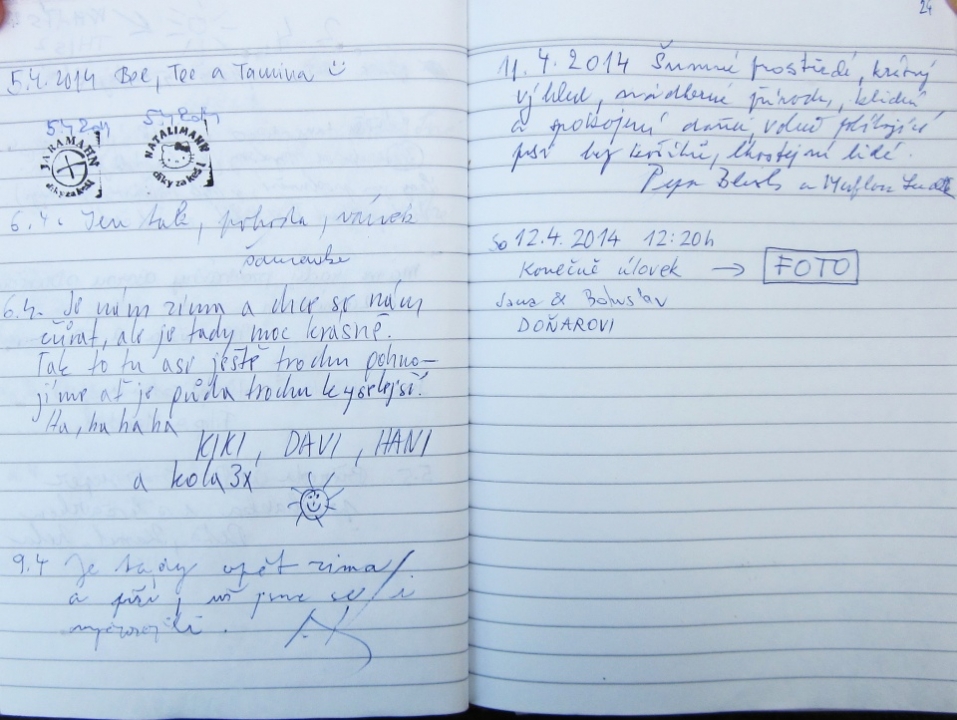 5.4.2014 Bee, Tee a Tamiva
5.4.2014
5.4.2014
JARAMATIN
díky za keš!
NATALIMANN
díky za keš!
6.4. Jen tak, pohoda, vánek
6.4. Je nám zima a chce se nám
čůrat, ale je tady moc krásně.
Tak to tu asi ještě trochu pohno-
jíme ať je půda trochu kyselejší!
Ha, ha ha ha
KIKI, DAVI, HANI
a kola 3x
9.4 Je tady opět zima
a prší, už jsme se i
24
11.4.2014 Šumné prostředí, krásný
výhled, nádherná příroda, klidní
a spokojení
psi, lidé.
a
So 12.4.2014 12:20h
Konečně úlovek → FOTO
Jana & Bohuslav
DOŇAROVI